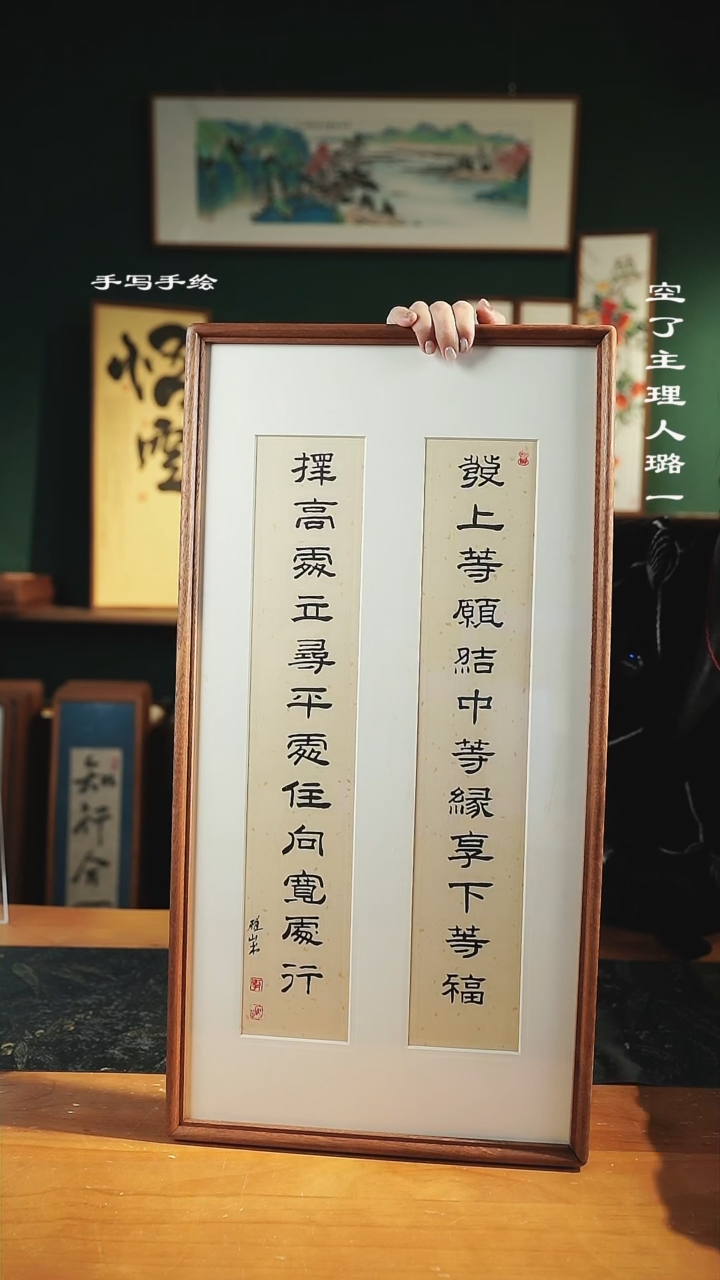 手写手绘
空了主理人璐一
發上等願結中等緣享下等福
擇高處立尋平處住向寬處行
悟空
知行合一